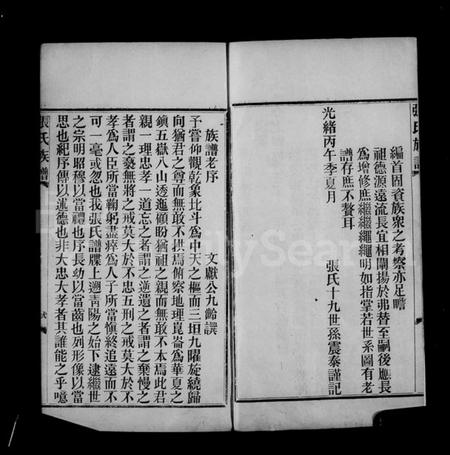 張氏族譜
編首固資族衆之考察亦足瞻
祖德源遠流長宜相闡揚於弗替至嗣後應長
爲增修庶繼繼繩繩明如指掌若世系圖有老
譜存庶不贅耳
光緒丙午季夏月
張氏十九世孫震泰謹記
族譜老序
文獻公九齡譔
予嘗仰觀乾象北斗爲中天之樞而三垣九曜旋繞歸
向猶君之尊而無敢不拱焉俯察地理崑崙爲華夏之
鎮五嶽八山透迤顧盼猶祖之親而無敢不本焉此君
親一理忠孝一道忘之者謂之逆遺之者謂之棄慢之
者謂之褻無將之戒莫大於不忠五刑之戒莫大於不
孝爲人臣所當鞠躬盡瘁爲人子所當愼終追遠而不
可一毫或忽也我張氏譜牒上遡靑陽之始下逮繼世
之宗明昭穆以當禮也序長幼以當齒也列形像以當
思也紀序傳以述德也非大忠大孝者其誰能之乎噫
張氏族譜
FamilySearch